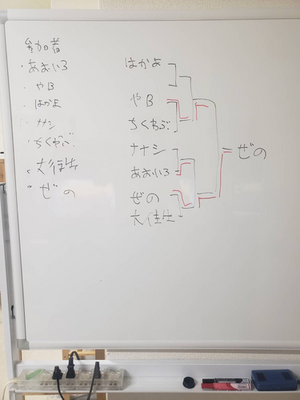 参加者
・あおいろ
・やB
・はかよ
・ナナシ
・ちくわぶ
・大佳士
・ぜの
はかよ
やB
ちくわぶ
ナナシ
あおいろ
ぜの
大佳士
ぜの